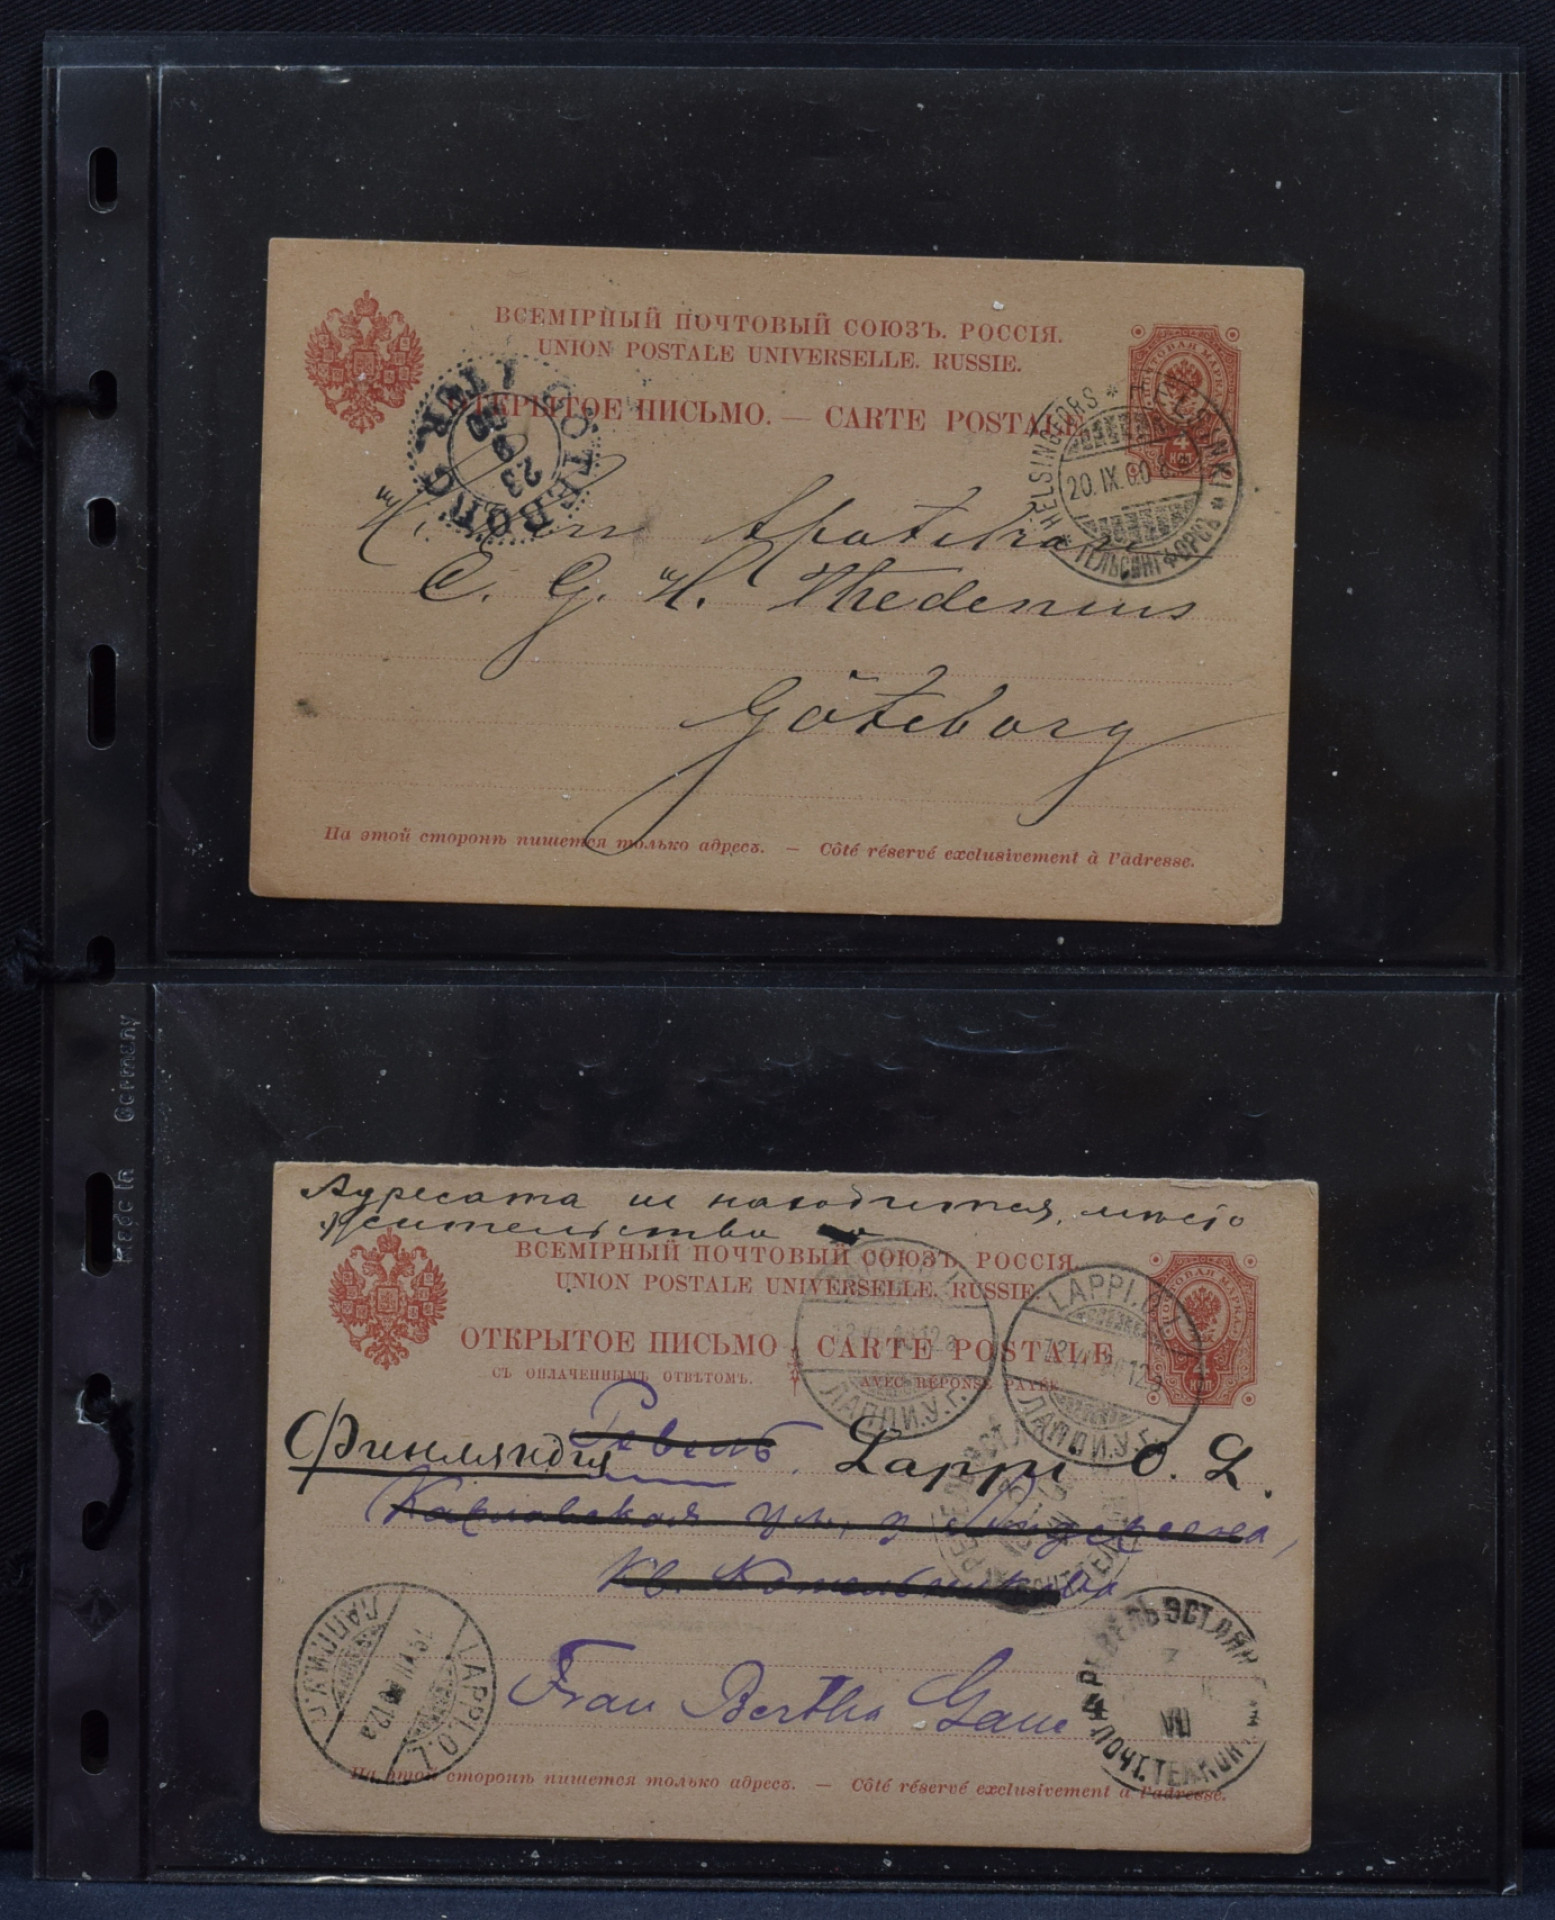 ВСЕМІРНЫЙ ПОЧТОВЫЙ СОЮЗЪ. РОССІЯ.
UNION POSTALE UNIVERSELLE. RUSSIE.
ОТКРЫТОЕ ПИСЬМО. — CARTE POSTALE
ПОЧТОВАЯ МАРКА
4
КОП
GÖTEBORG 1 TUR
23
9
00
HELSINGFORS * HELSINKI * ГЕЛЬСИНГФОРСЪ
20. IX. 00
H. Herr Apotekare
C. G. H. Thedenius
Göteborg
На этой сторонѣ пишется только адресъ. — Côté réservé exclusivement à l'adresse.
Made in Germany
Адресата не находится, место
жительства
ВСЕМІРНЫЙ ПОЧТОВЫЙ СОЮЗЪ. РОССІЯ.
UNION POSTALE UNIVERSELLE. RUSSIE.
ОТКРЫТОЕ ПИСЬМО CARTE POSTALE
СЪ ОПЛАЧЕННЫМЪ ОТВѢТОМЪ. AVEC RÉPONSE PAYÉE
ПОЧТОВАЯ МАРКА
4
КОП
ЛАППИ.У.Г.
LAPPI.
ЛАППИ.У.Г.
Ревель.
Финляндія Lappi O. L.
Кв. Котельникова
Frau Bertha
LAPPI.O.L.
ЛАППИ.У.Г.
РЕВЕЛЬ ЭСТЛЯН
VII
ПОЧТ.ТЕЛ.КОН
4
На этой сторонѣ пишется только адресъ. — Côté réservé exclusivement à l'adresse.